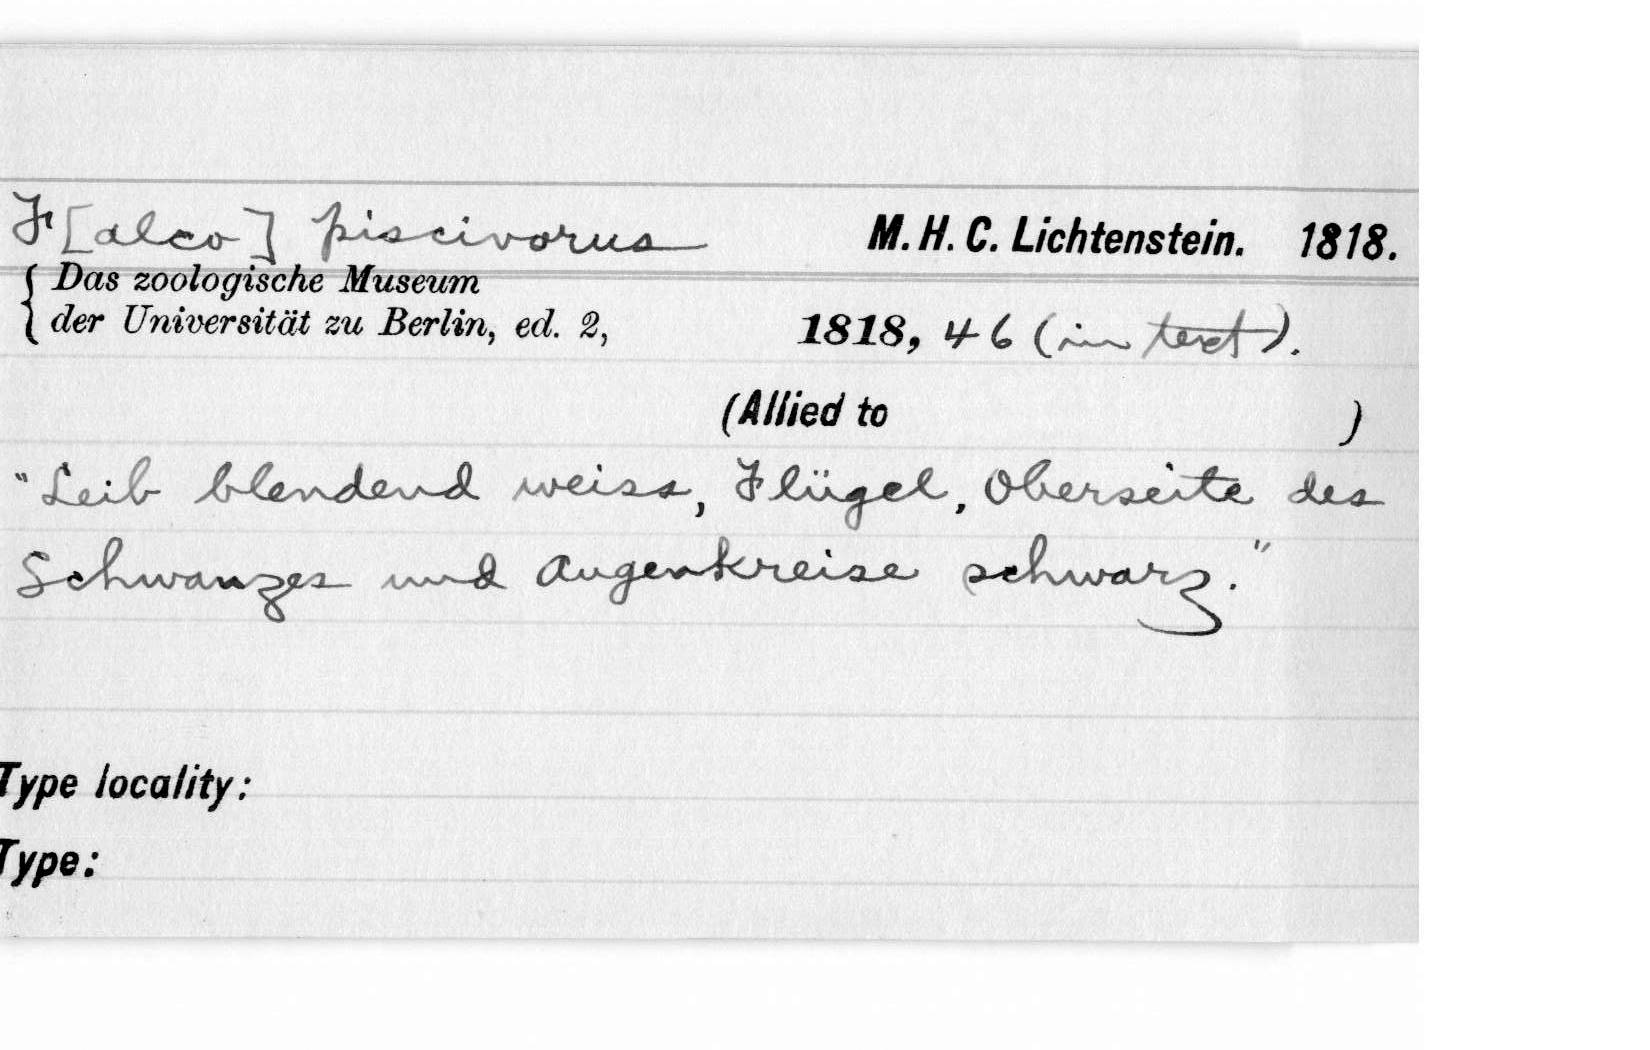 F[alco] piscivorus M. H. C. Lichtenstein. 1818.
{ Das zoologische Museum
der Universität zu Berlin, ed. 2, 1818, 46 (in text).
(Allied to )
"Leib blendend weiss, Flügel, Oberseite des
Schwanzes und Augenkreise schwarz."
Type locality:
Type: